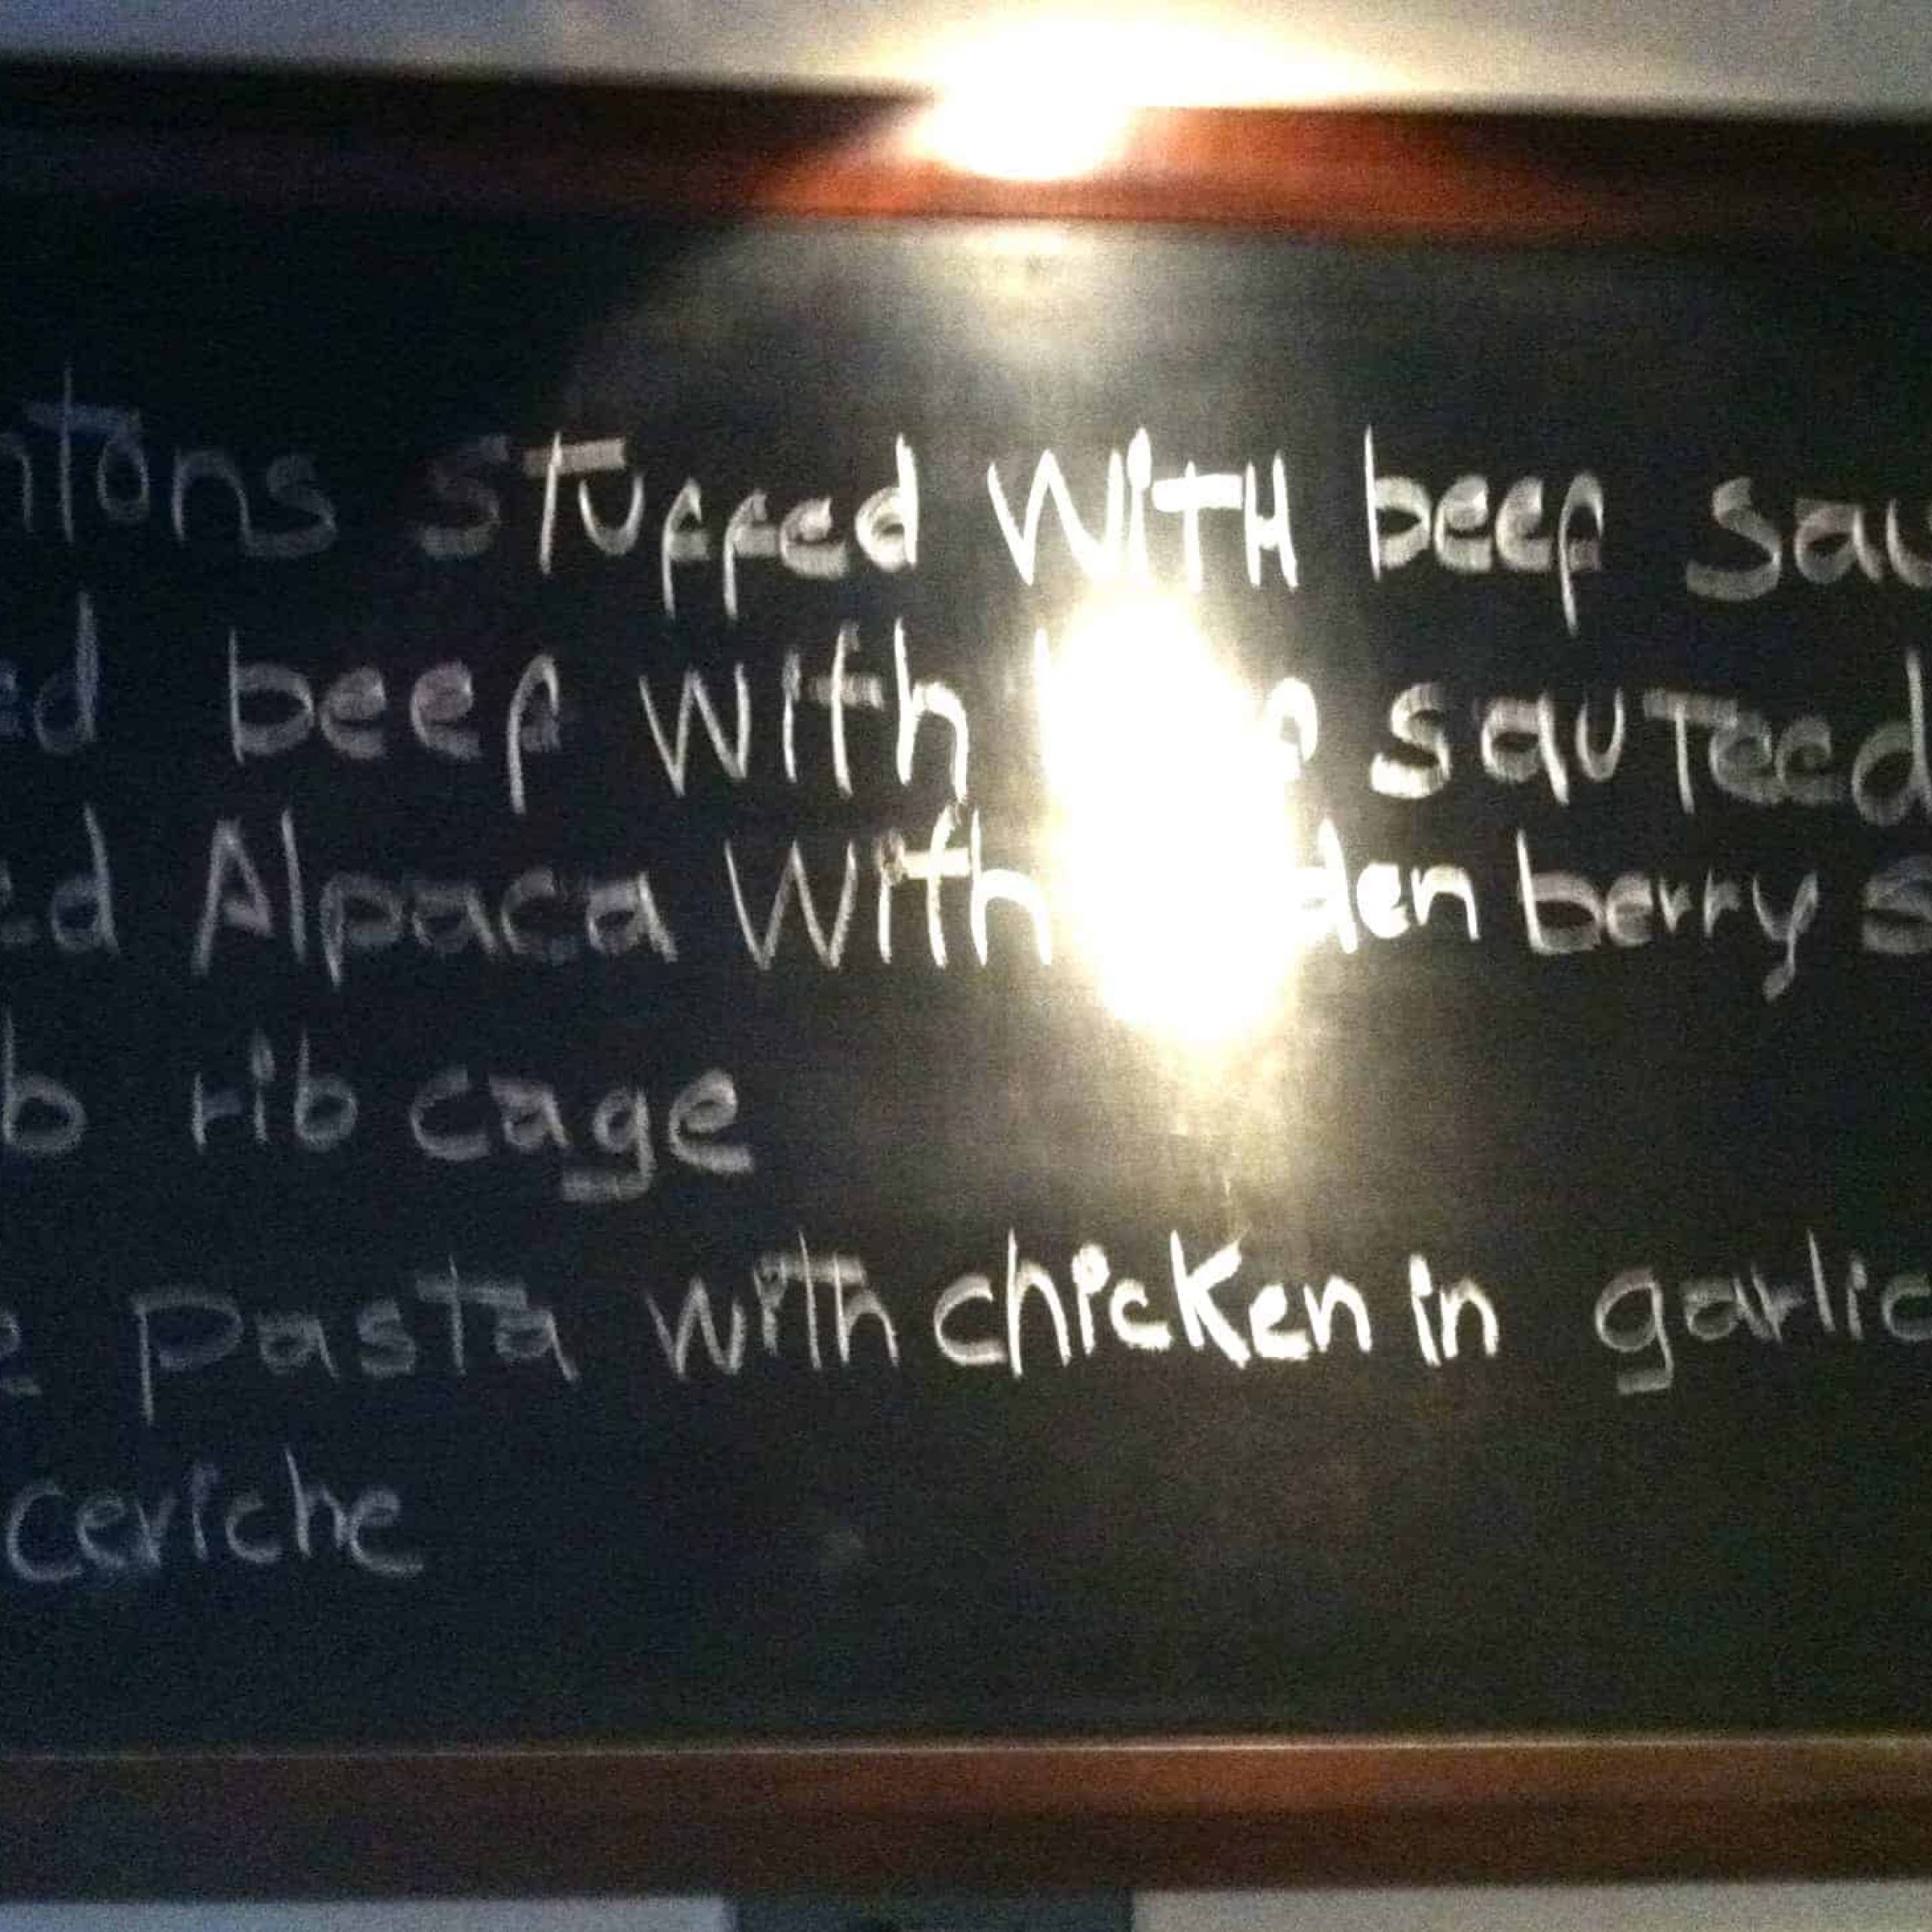 ntons stuffed WITH beef sau
ed beef with sauteed
ed Alpaca with den berry s
b rib cage
e pasta with chicken in garlic
ceviche